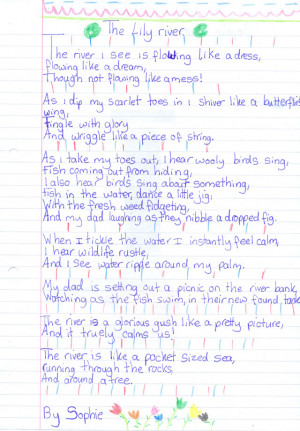 The lily river
The river I see is flowing like a dress,
flowing like a dream,
Though not flowing like a mess!
As I dip my scarlet toes in I shiver like a butterflies
wing,
Tingle with glory
And wriggle like a piece of string.
As I take my toes out, I hear wooly birds sing,
Fish coming out from hiding,
I also hear birds sing about something,
Fish in the water, dance a little jig,
With the fresh weed fidgeting,
And my dad laughing as they nibble a dropped fig.
When I tickle the water I instantly feel calm,
I hear wildlife rustle,
And I see water ripple around, my, palm.
My dad is setting out a picnic on the river bank,
Watching as the fish swim, in their new found, tank
The river is a glorious gush like a pretty picture,
And it truely calms us!
The river is like a pocket sized sea,
running through the rocks
And around a tree.
By Sophie